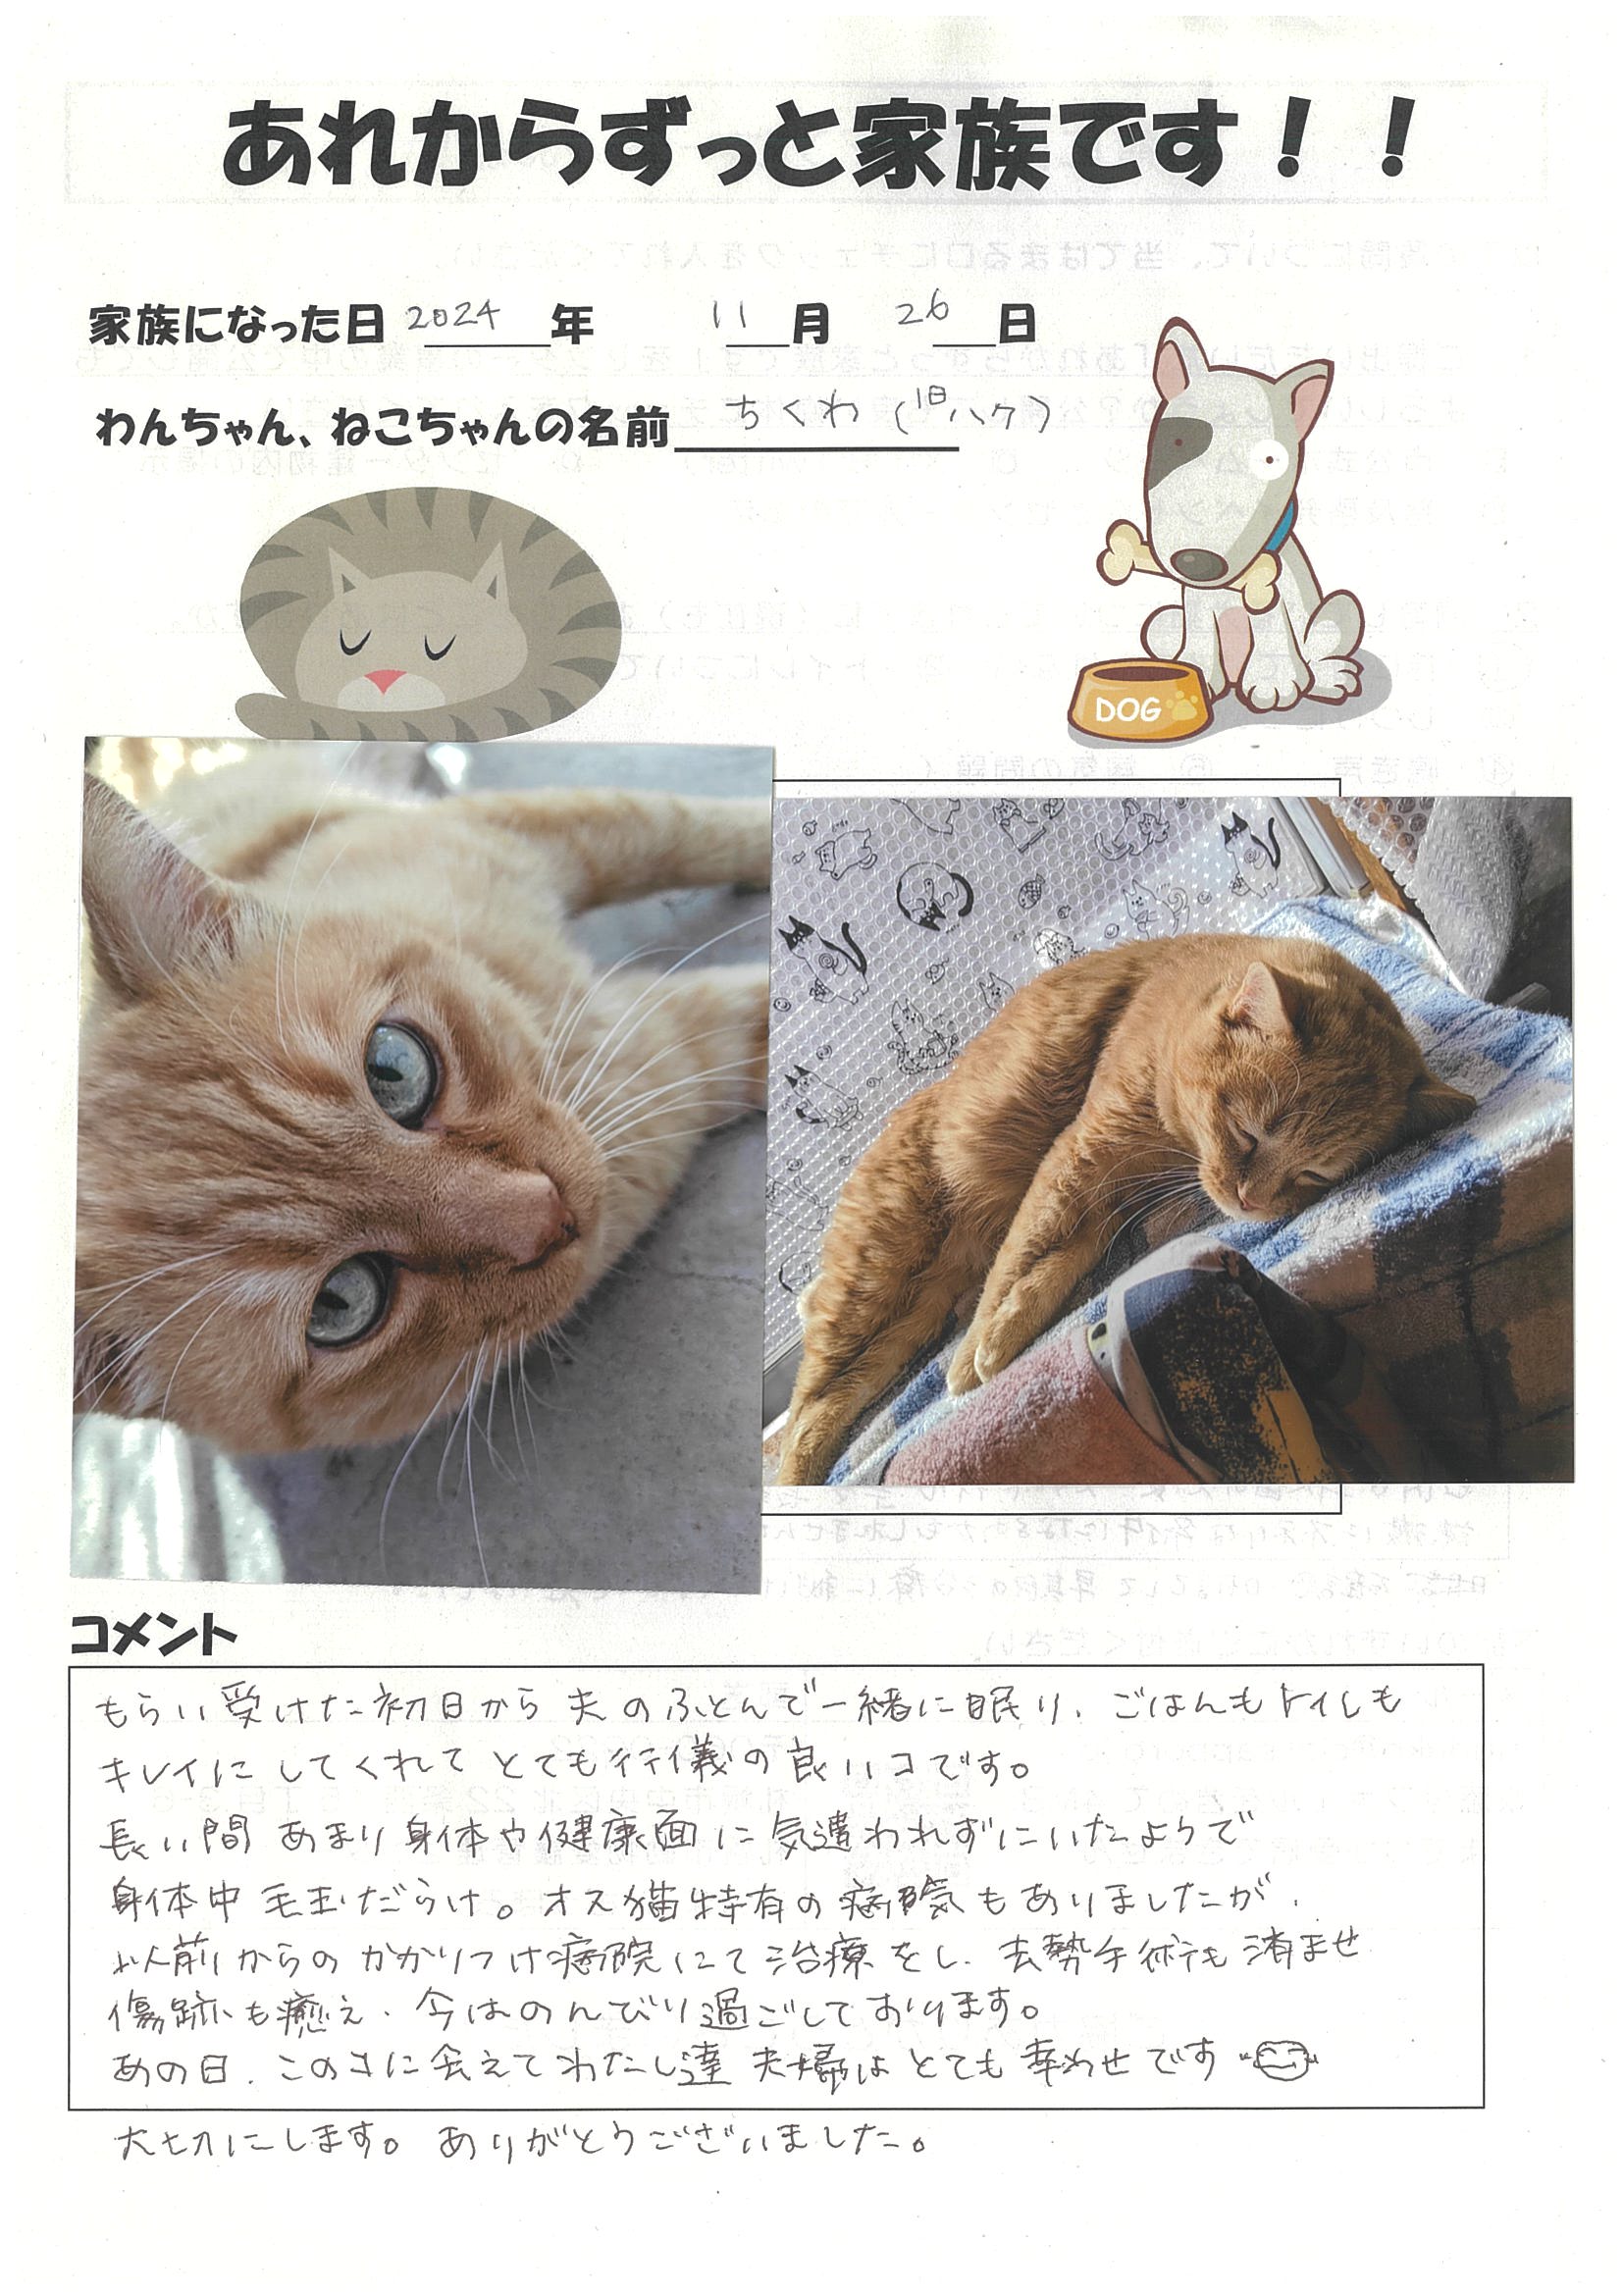 あれからずっと家族です！！
家族になった日 2024年 11月 26日
わんちゃん、ねこちゃんの名前 ちくわ（旧ハク）
DOG
コメント
もらい受けた初日から夫のふとんで一緒に眠り、ごはんもトイレも
キレイにしてくれてとても行儀の良いコです。
長い間あまり身体や健康面に気遣われずにいたようで
身体中毛玉だらけ。オス猫特有の病気もありましたが、
以前からのかかりつけ病院にて治療をし、去勢手術も済ませ
傷跡も癒え、今はのんびり過ごしております。
あの日、このコに会えてわたし達夫婦はとても幸わせです
大切にします。ありがとうございました。